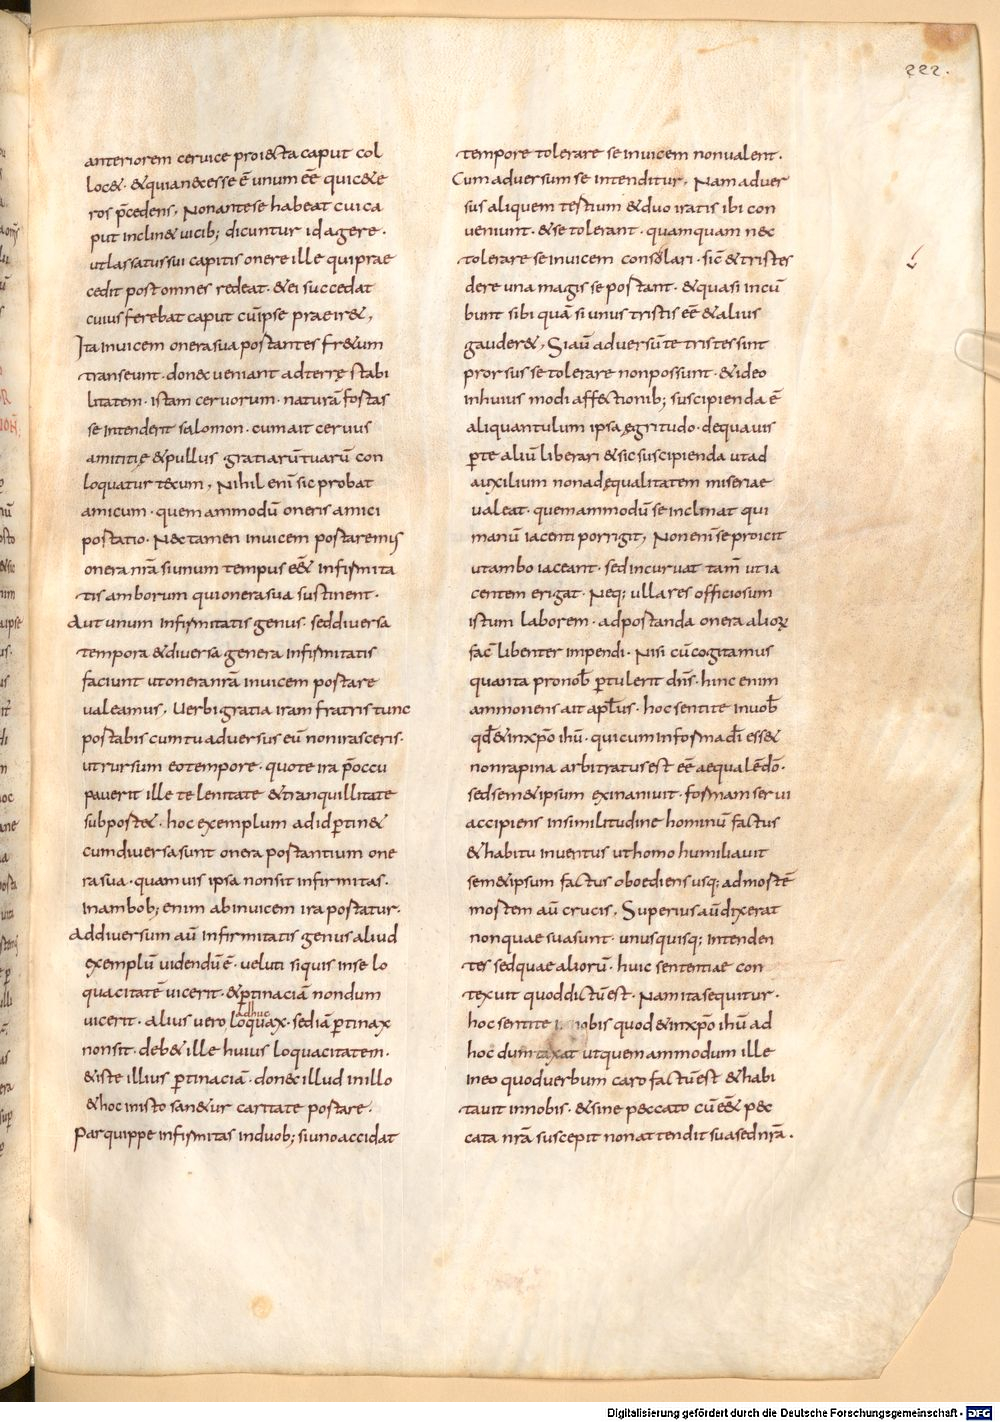 222.
anteriorem ceruice proiecta caput col
loc&. & quia necesse ē unum eē qui c&e
ros p̄cedens, Non ante se habeat cui ca
put inclin& uicib; dicuntur id agere.
ut lassatus sui capitis onere ille qui prae
cedit post omnes redeat. & ei succedat
cuius ferebat caput cū ipse praeir&,
Ita inuicem onera sua portantes fr&um
transeunt. donec ueniant ad terrę stabi
litatem. istam ceruorum. naturā fortas
se intenderit salomon. cum ait ceruus
amititię & pullus gratiarū tuarū con
loquatur tecum, Nihil enī sic probat
amicum. quem ammodū oneris amici
portatio. Nec tamen inuicem portaremus
onera nrā si unum tempus e&̄ infirmita
tis amborum qui onera sua sustinent.
Aut unum infirmitatis genus. sed diuersa
tempora & diuersa genera infirmitatis
faciunt ut onera nrā inuicem portare
ualeamus, Uerbi gratia iram fratris tunc
portabis cum tu aduersus eū non irasceris.
ut rursum eo tempore. quo te ira p̄occu
pauerit ille te lenitate & tranquillitate
subport&. hoc exemplum ad id p̱tin&
cum diuersa sunt onera portantium one
ra sua. quamuis ipsa non sit infirmitas.
In ambob; enim ab inuicem ira portatur.
Ad diuersum aū infirmitatis genus aliud
exemplū uidendū ē. ueluti si quis in se lo
quacitatē uicerit. & p̱tinaciā nondum
adhuc
uicerit. alius uero loquax. sed iā p̱tinax
non sit. deb& ille huius loquacitatem.
& iste illius p̱tinaciā. donec illud in illo
& hoc in isto san&ur caritate portare.
Par quippe infirmitas in duob; si uno accidat
tempore tolerare se inuicem non ualent.
Cum aduersum se intenditur, Nam aduer
sus aliquem tertium & duo iratis ibi con
ueniunt. & se tolerant. quamquam nec
tolerare se inuicem consolari. sic̄ & tristes
dere una magis se portant. & quasi incū
bunt sibi quā si unus tristis eē & alius
gauder&, Si aū aduersū te tristes sint
prorsus se tolerare non possunt. & ideo
in huius modi affectionib; suscipienda ē
aliquantulum ipsa ęgritudo. de qua uis
p̱te aliū liberari & sic suscipienda ut ad
auxilium non adęqualitatem miseriae
ualeat. quem ammodū se inclinat qui
manū iacenti porrigit, Non enī se proicit
ut ambo iaceant. sed incuruat tam̄ ut ia
centem erigat. Neq; ulla res officiosum
istum laborem. ad portanda onera alioꝝ
fac̄ libenter impendi. Nisi cū cogitamus
quanta pro nob̄ p̱tulerit dn̄s. hinc enim
ammonens ait apl̄us. hoc sentite in uob̄
qđ & in xp̄o ih̄u. qui cum in forma dī ess&
non rapina arbitratus est eē aequalē dō.
sed sem&ipsum exinaniuit. formam serui
accipiens in similitudine hominū factus
& habitu inuentus ut homo humiliauit
sem&ipsum factus oboediens usq; ad mortē
mortem aū crucis, Superius aū dixerat
non quae sua sunt. unusquisq; intenden
tes sed quae aliorū. huic sententiae con
texuit quod dictū est. Nam ita sequitur.
hoc sentite nobis quod & in xp̄o ih̄u ad
hoc dumtaxat ut quem ammodum ille
in eo quod uerbum caro factū est & habi
tauit in nobis. & sine peccato cū e&̄ pec
cata nrā suscepit non attendit sua sed nrā.
Digitalisierung gefördert durch die Deutsche Forschungsgemeinschaft - DFG